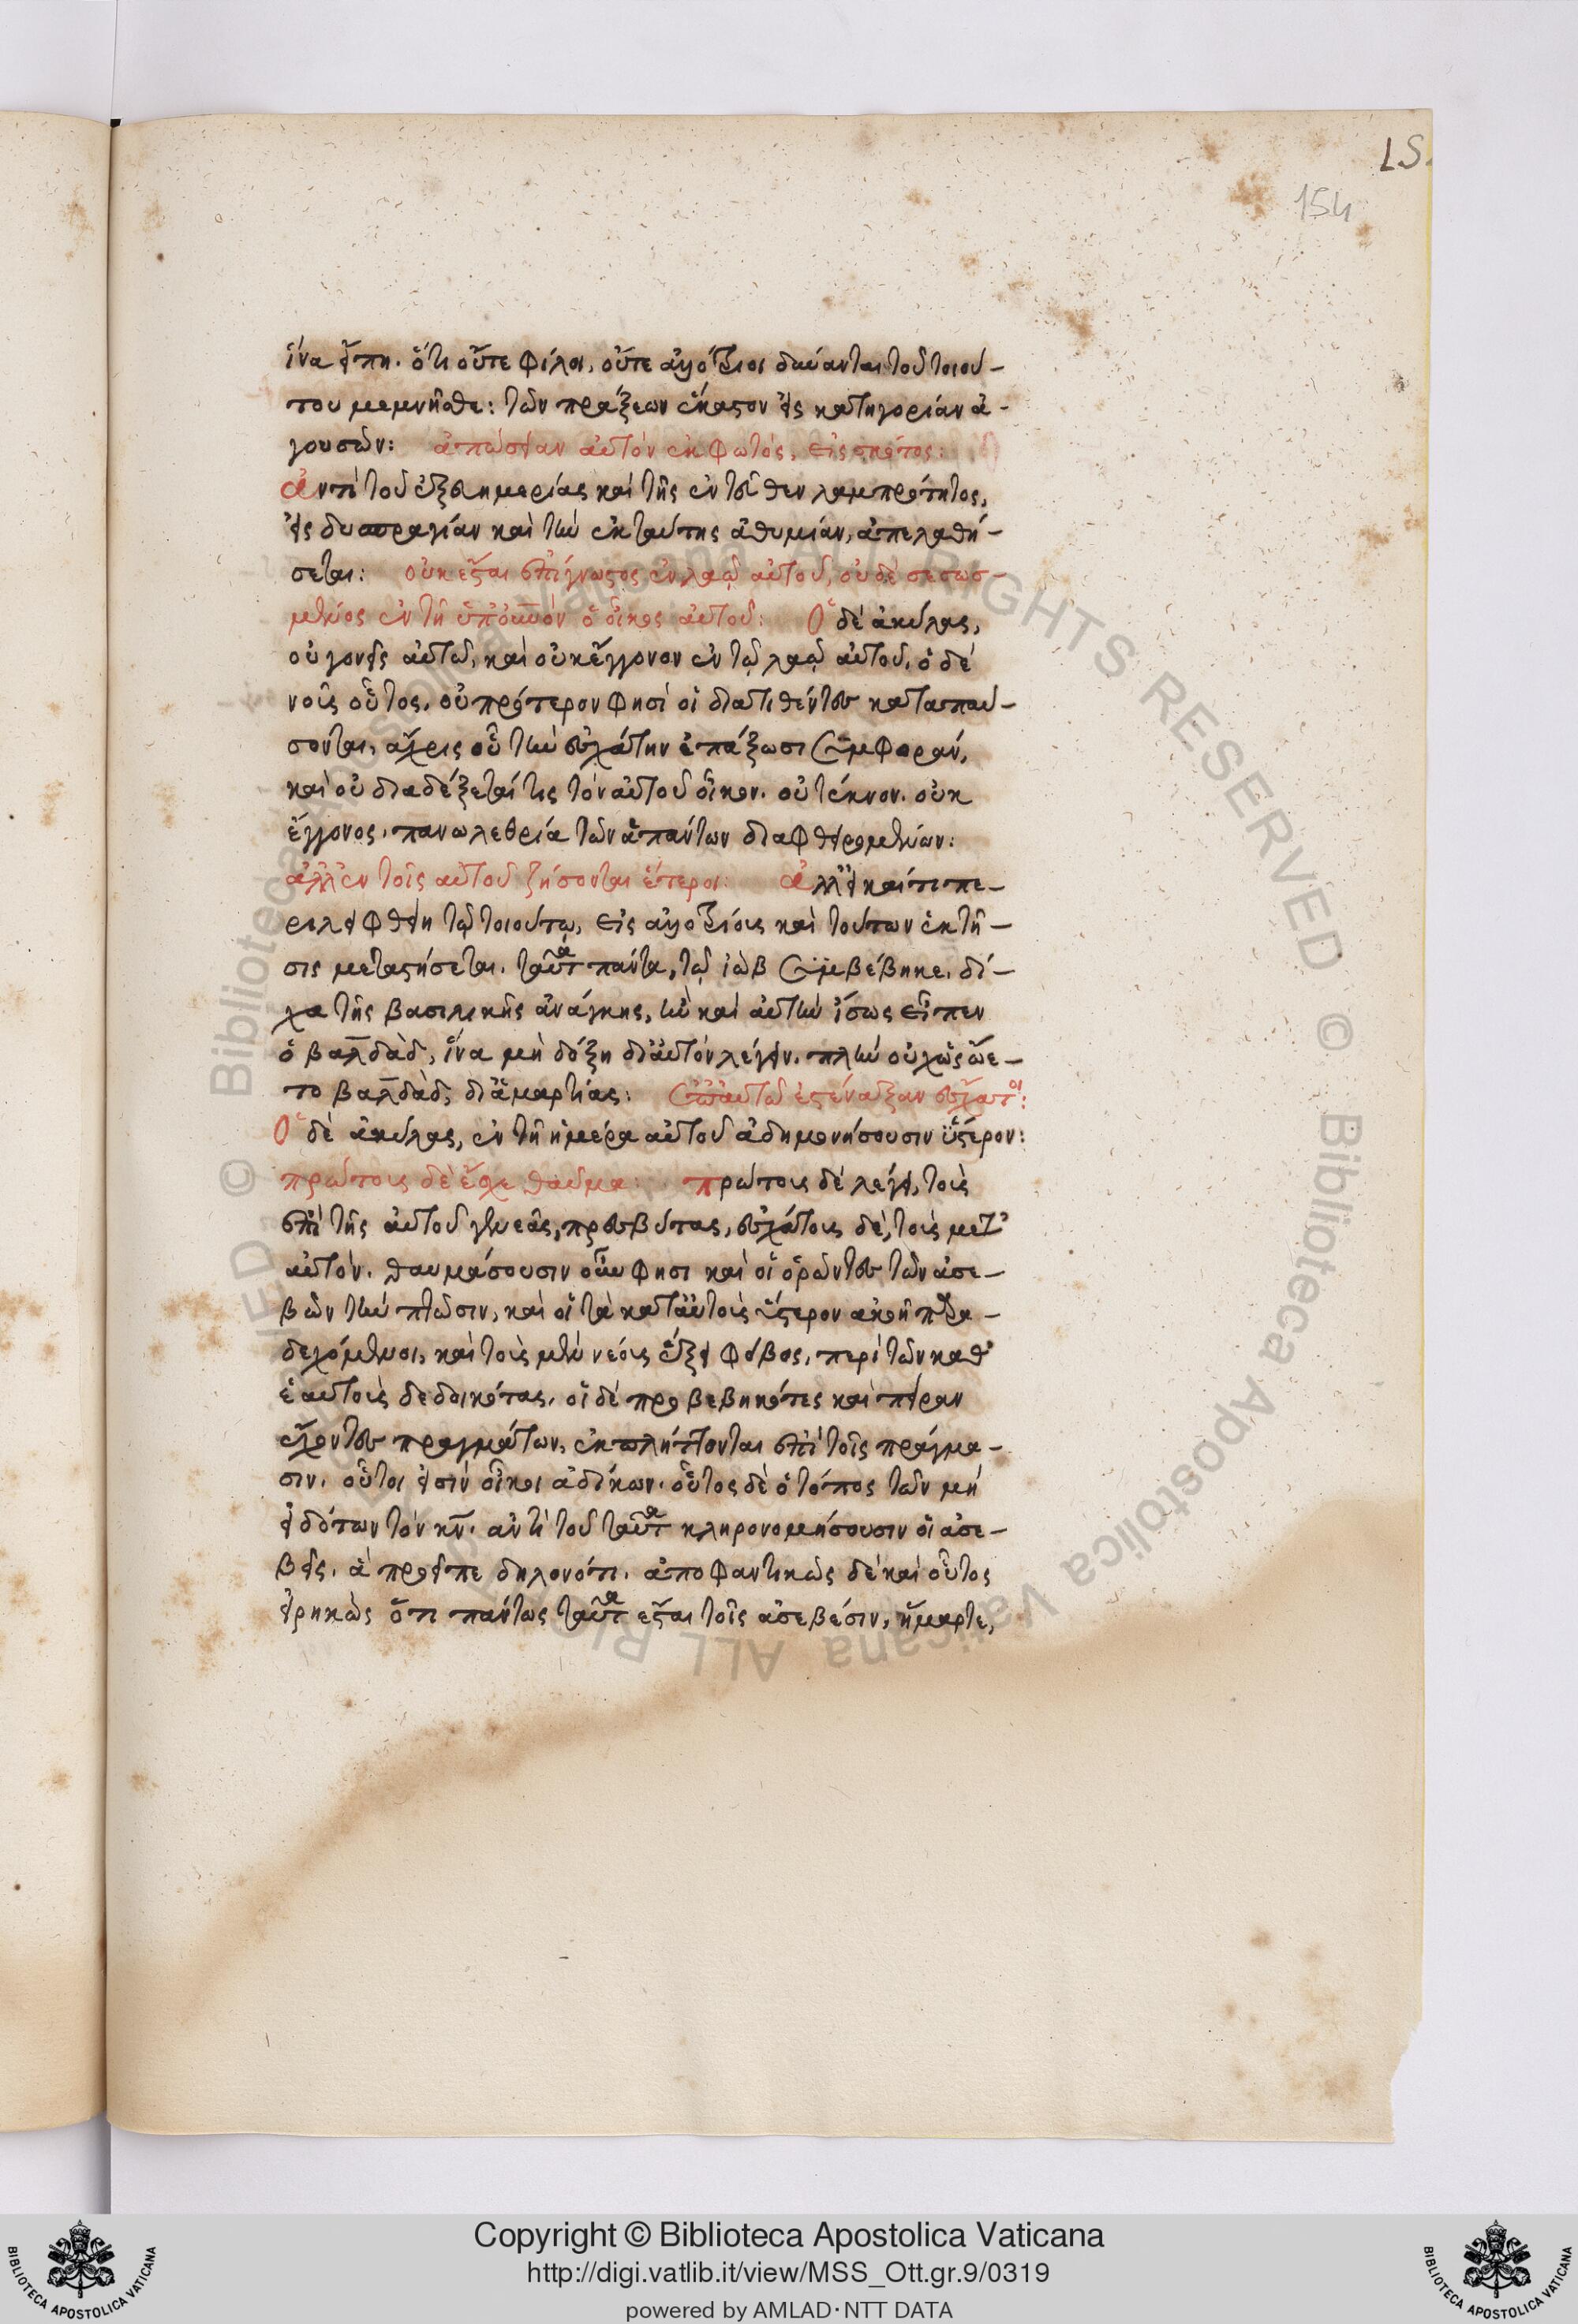 LS.
154
ἵνα εἴπη. ὅτι οὔτε φίλοι, οὔτε ἀλλότριοι δύνανται τοῦ τοιού-
του μεμνῆσθαι: τῶν πράξεων ἕκαστον εἰς κατηγορίαν ἀ-
γουσῶν: ἀπώσειαν αὐτὸν ἐκ φωτὸς, εἰς σκότος:
ἀντὶ τοῦ ἐξ εὐημερίας καὶ τῆς ἐντεῦθεν λαμπρότητος,
εἰς δυσπραγίαν καὶ τὴν ἐκ ταύτης ἀθυμίαν, ἀπελαθή-
σεται: οὐκ ἔσται ἐπίγνωστος ἐν λαῷ αὐτοῦ, οὐδὲ σεσωσ-
μένος ἐν τῇ ὑπ' οὐνὸν ὁ οἶκος αὐτοῦ: Ὁ δὲ ἀκύλας,
οὐ γονεῖς αὐτῶ, καὶ οὐκ ἔγγονον ἐν τῷ λαῷ αὐτοῦ. ὁ δὲ
νοῦς οὗτος. οὐ πρότερον φησὶ οἱ διατιθέντες καταπαύ-
σονται, ἄχρις οὗ τὴν ἐσχάτην ἐπάξωσι συμφοράν,
καὶ οὐ διαδέξεταί τις τὸν αὐτοῦ οἶκον. οὐ τέκνον. οὐκ
ἔγγονος. πανωλεθρία τῶν ἁπάντων διαφθειρομένων:
ἀλλ' ἐν τοῖς αὐτοῦ ζήσονται ἕτεροι: ἀλλ' εἰ καί τι πε-
ριλειφθείη τῷ τοιούτῳ, εἰς ἀλλοτρίους καὶ τούτων ἡ κτῆ-
σις μεταστήσεται. ταῦτα πάντα, τῷ ἰὼβ συμβέβηκε. δί-
χα τῆς βασιλικῆς ἀνάγκης, ἣν καὶ αὐτὴν ἴσως εἶπεν
ὁ βαλδὰδ, ἵνα μὴ δόξη δι' αὐτὸν λέγειν. πλὴν οὐχ ὡς ᾤε-
το βαλδὰδ, δι' ἁμαρτίας: ἐπ' αὐτῶ ἐστέναξαν ἔσχατοι:
Ὁ δὲ ἀκύλας, ἐν τῇ ἡμέρα αὐτοῦ ἀδημονήσουσιν ὕστερον:
πρώτους δὲ ἔσχε θαῦμα: πρώτους δὲ λέγει, τοὺς
ἐπὶ τῆς αὐτοῦ γενεᾶς, πρεσβύτας, ἐσχάτους δὲ, τοὺς μετ'
αὐτὸν. θαυμάσουσιν οὖν φησι καὶ οἱ ὁρῶντες τῶν ἀσε-
βῶν τὴν πτῶσιν, καὶ οἱ τὰ κατ' αὐτοὺς ὕστερον ἀκοῇ παρα-
δεχόμενοι, καὶ τοὺς μὲν νέους ἕξει φόβος, περὶ τῶν καθ'
ἑαυτοὺς δεδοικότας. οἱ δὲ προβεβηκότες καὶ πεῖραν
ἔχοντες πραγμάτων, ἐκπλήττονται ἐπὶ τοῖς πράγμα-
σιν. οὗτοι εἰσὶν οἶκοι ἀδίκων. οὗτος δὲ ὁ τόπος τῶν μὴ
εἰδότων τὸν κν. ἀντὶ τοῦ ταῦτα κληρονομήσουσιν οἱ ἀσε-
βεῖς. ἃ προεῖπε δηλονότι. ἀποφαντικῶς δὲ καὶ οὗτος
εἰρηκὼς ὅτι πάντως ταῦτα ἔσται τοῖς ἀσεβέσιν, ἥμαρτε,
Copyright © Biblioteca Apostolica Vaticana
http://digi.vatlib.it/view/MSS_Ott.gr.9/0319
powered by AMLAD·NTT DATA